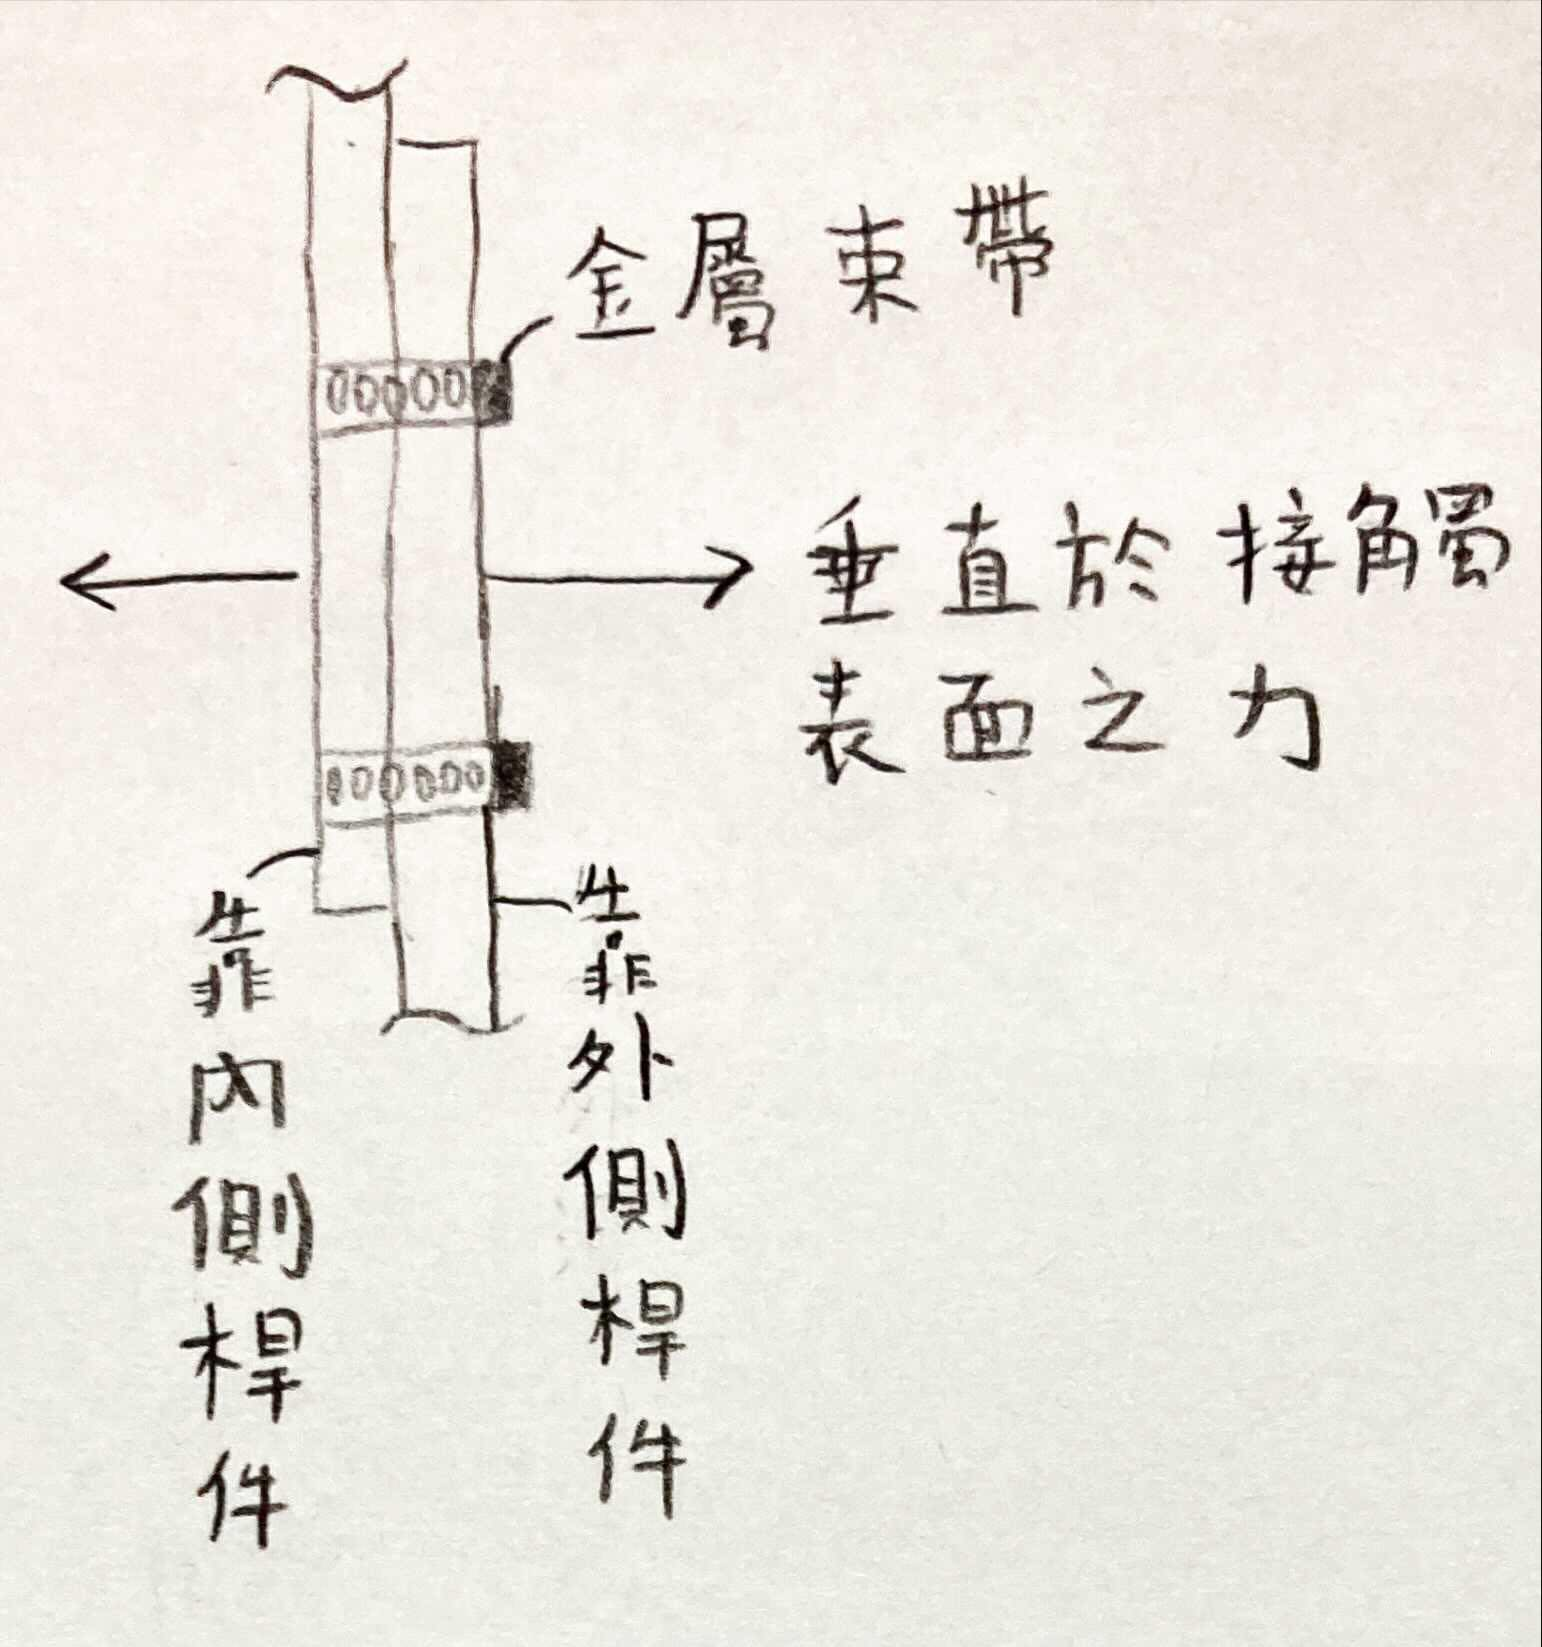 金屬束帶
垂直於接觸
表面之力
靠內側桿件
靠外側桿件